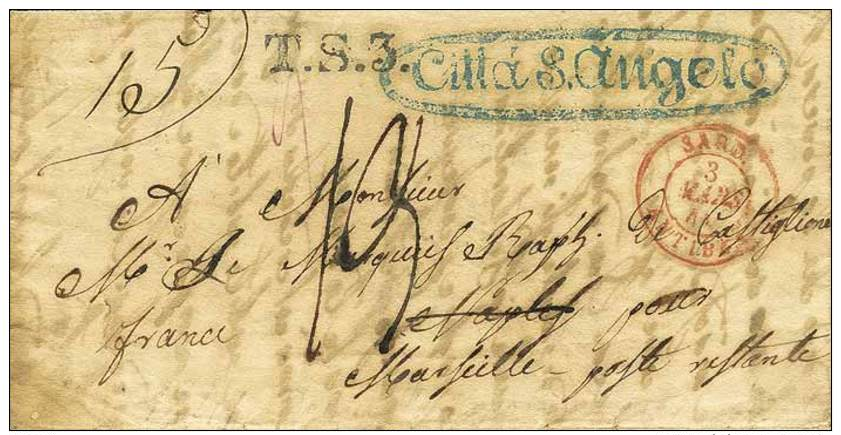 15
T.S.3.
Città S. Angelo
SARD.
3
MARS
ANTIBES
13
A Monsieur
Mr. Le Marquis Raph. De Castiglione
Naples pour
france
Marseille - poste restante